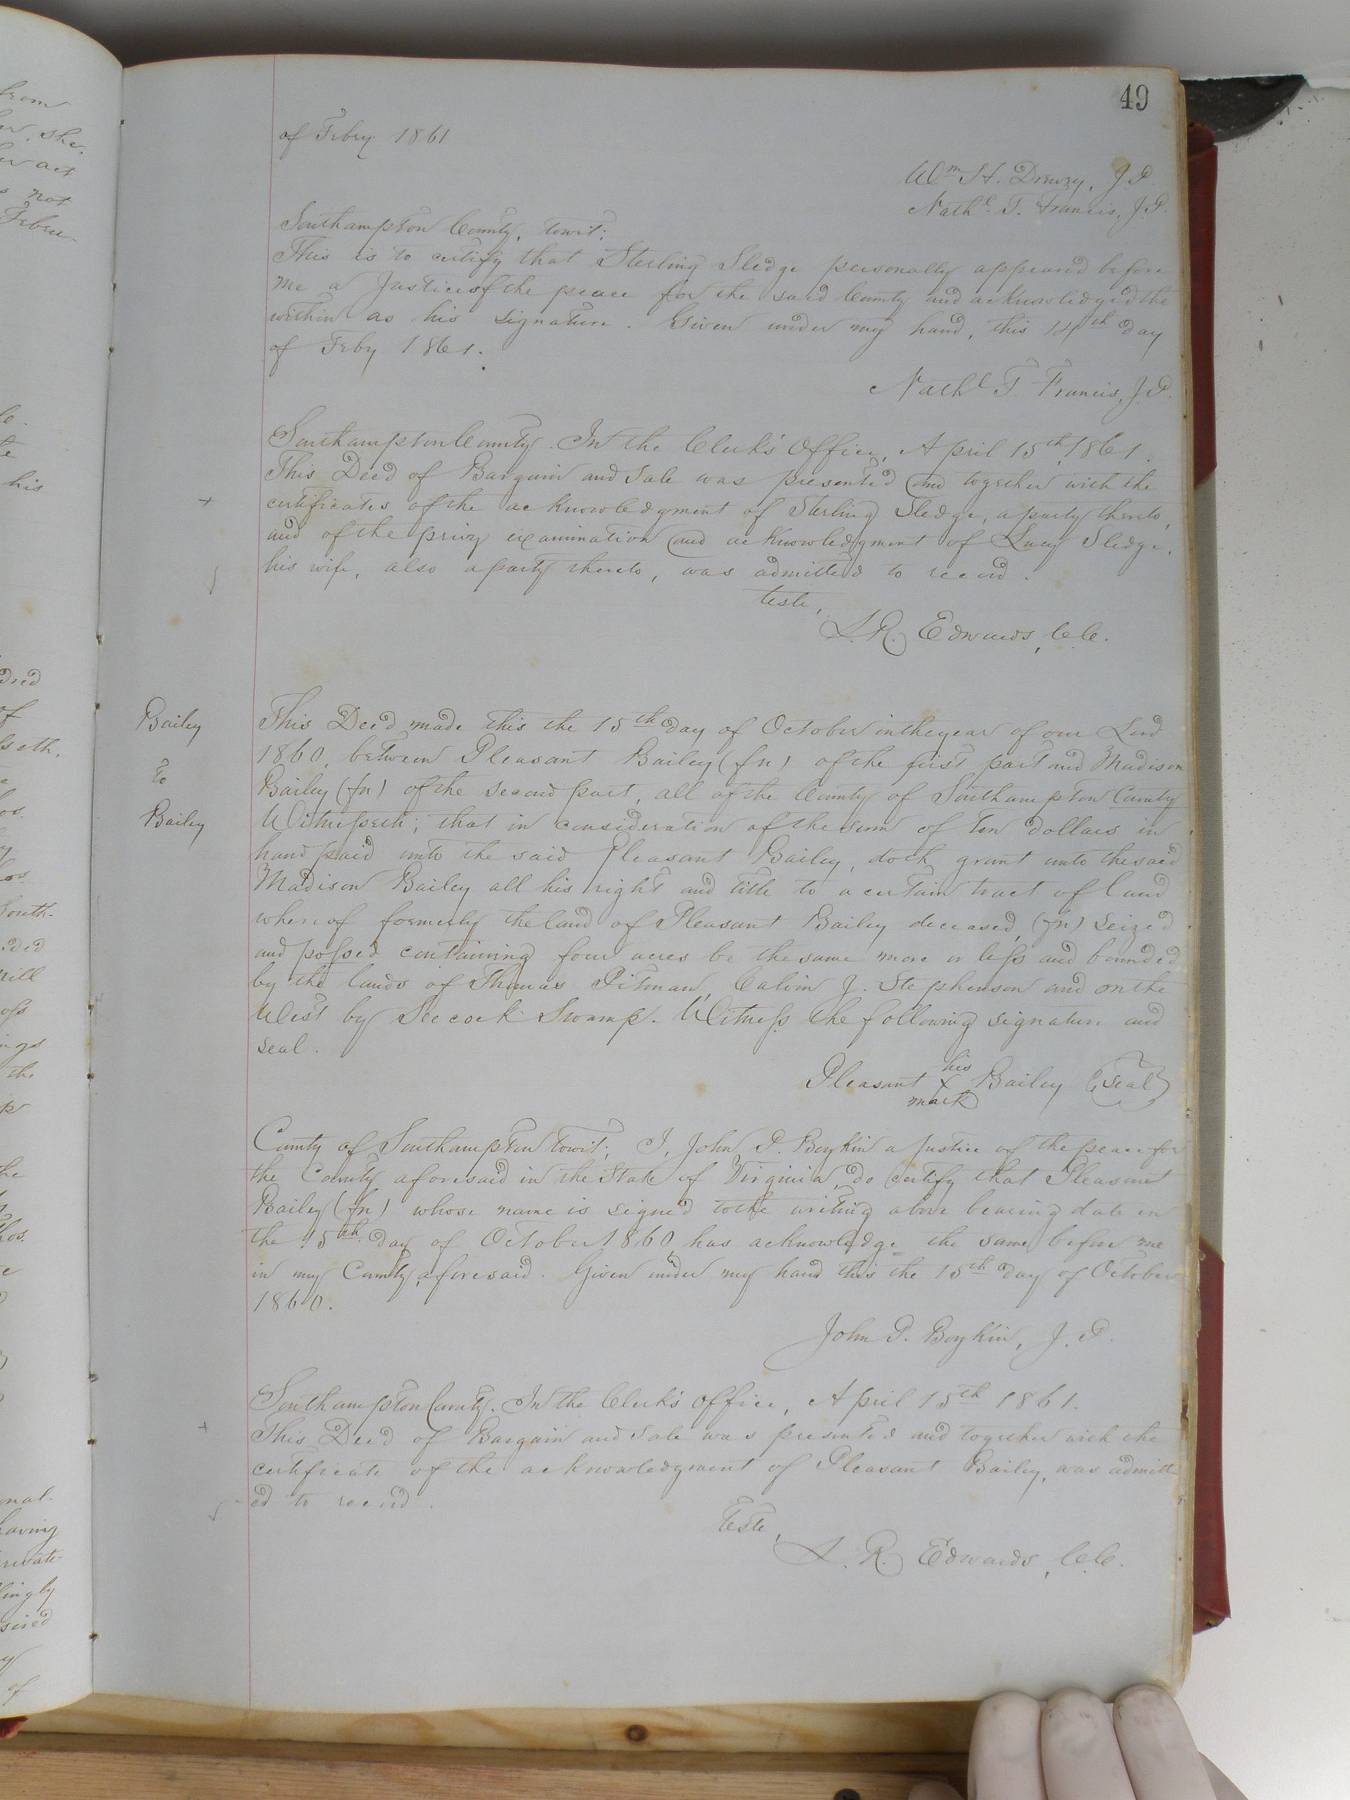 49
of Febry 1861
Wm H. Drewry, J.P.
Nathl. T. Francis, J.P.
Southampton County, towit:
This is to certify that Sterling Sledge personally appeared before
me a Justice of the peace for the said County and acknowledged the
within as his signature. Given under my hand, this 14th day
of Feby 1861.
Nathl T. Francis, J.P.
Southampton County. In the Clerk's Office, April 15th, 1861.
This Deed of Bargain and Sale was presented and together with the
certificates of the acknowledgment of Sterling Sledge, a party thereto,
and of the privy examination and acknowledgment of Lucy Sledge,
his wife, also a party thereto, was admitted to record.
Teste,
L. R. Edwards, C.C.
Bailey
To
Bailey
This Deed made this the 15th day of October in the year of our Lord
1860, between Pleasant Bailey (fn) of the first part and Madison
Bailey (fn) of the second part, all of the County of Southampton County
Witnesseth; that in consideration of the sum of ten dollars in
hand paid unto the said Pleasant Bailey, doth grant unto the said
Madison Bailey all his right and title to a certain tract of land
whereof formerly the land of Pleasant Bailey deceased, (fn) seized
and possed containing four acres be the same more or less and bounded
by the lands of Thomas Pitman, Calvin J. Stephenson and on the
West by Seccock Swamp. Witness the following signature and
seal.
his
Pleasant X Bailey (seal)
mark
County of Southampton towit; I, John P. Boykin a Justice of the peace for
the County aforesaid in the State of Virginia, do certify that Pleasant
Bailey (fn) whose name is signed to the writing above bearing date on
the 15th day of October 1860 has acknowledge the same before me
in my County aforesaid. Given under my hand this the 15th day of October
1860.
John P. Boykin, J.P.
Southampton County. In the Clerk's Office, April 15th 1861.
This Deed of Bargain and Sale was presented and together with the
certificate of the acknowledgment of Pleasant Bailey, was admitt
ed to record.
Teste,
L. R. Edwards, C.C.